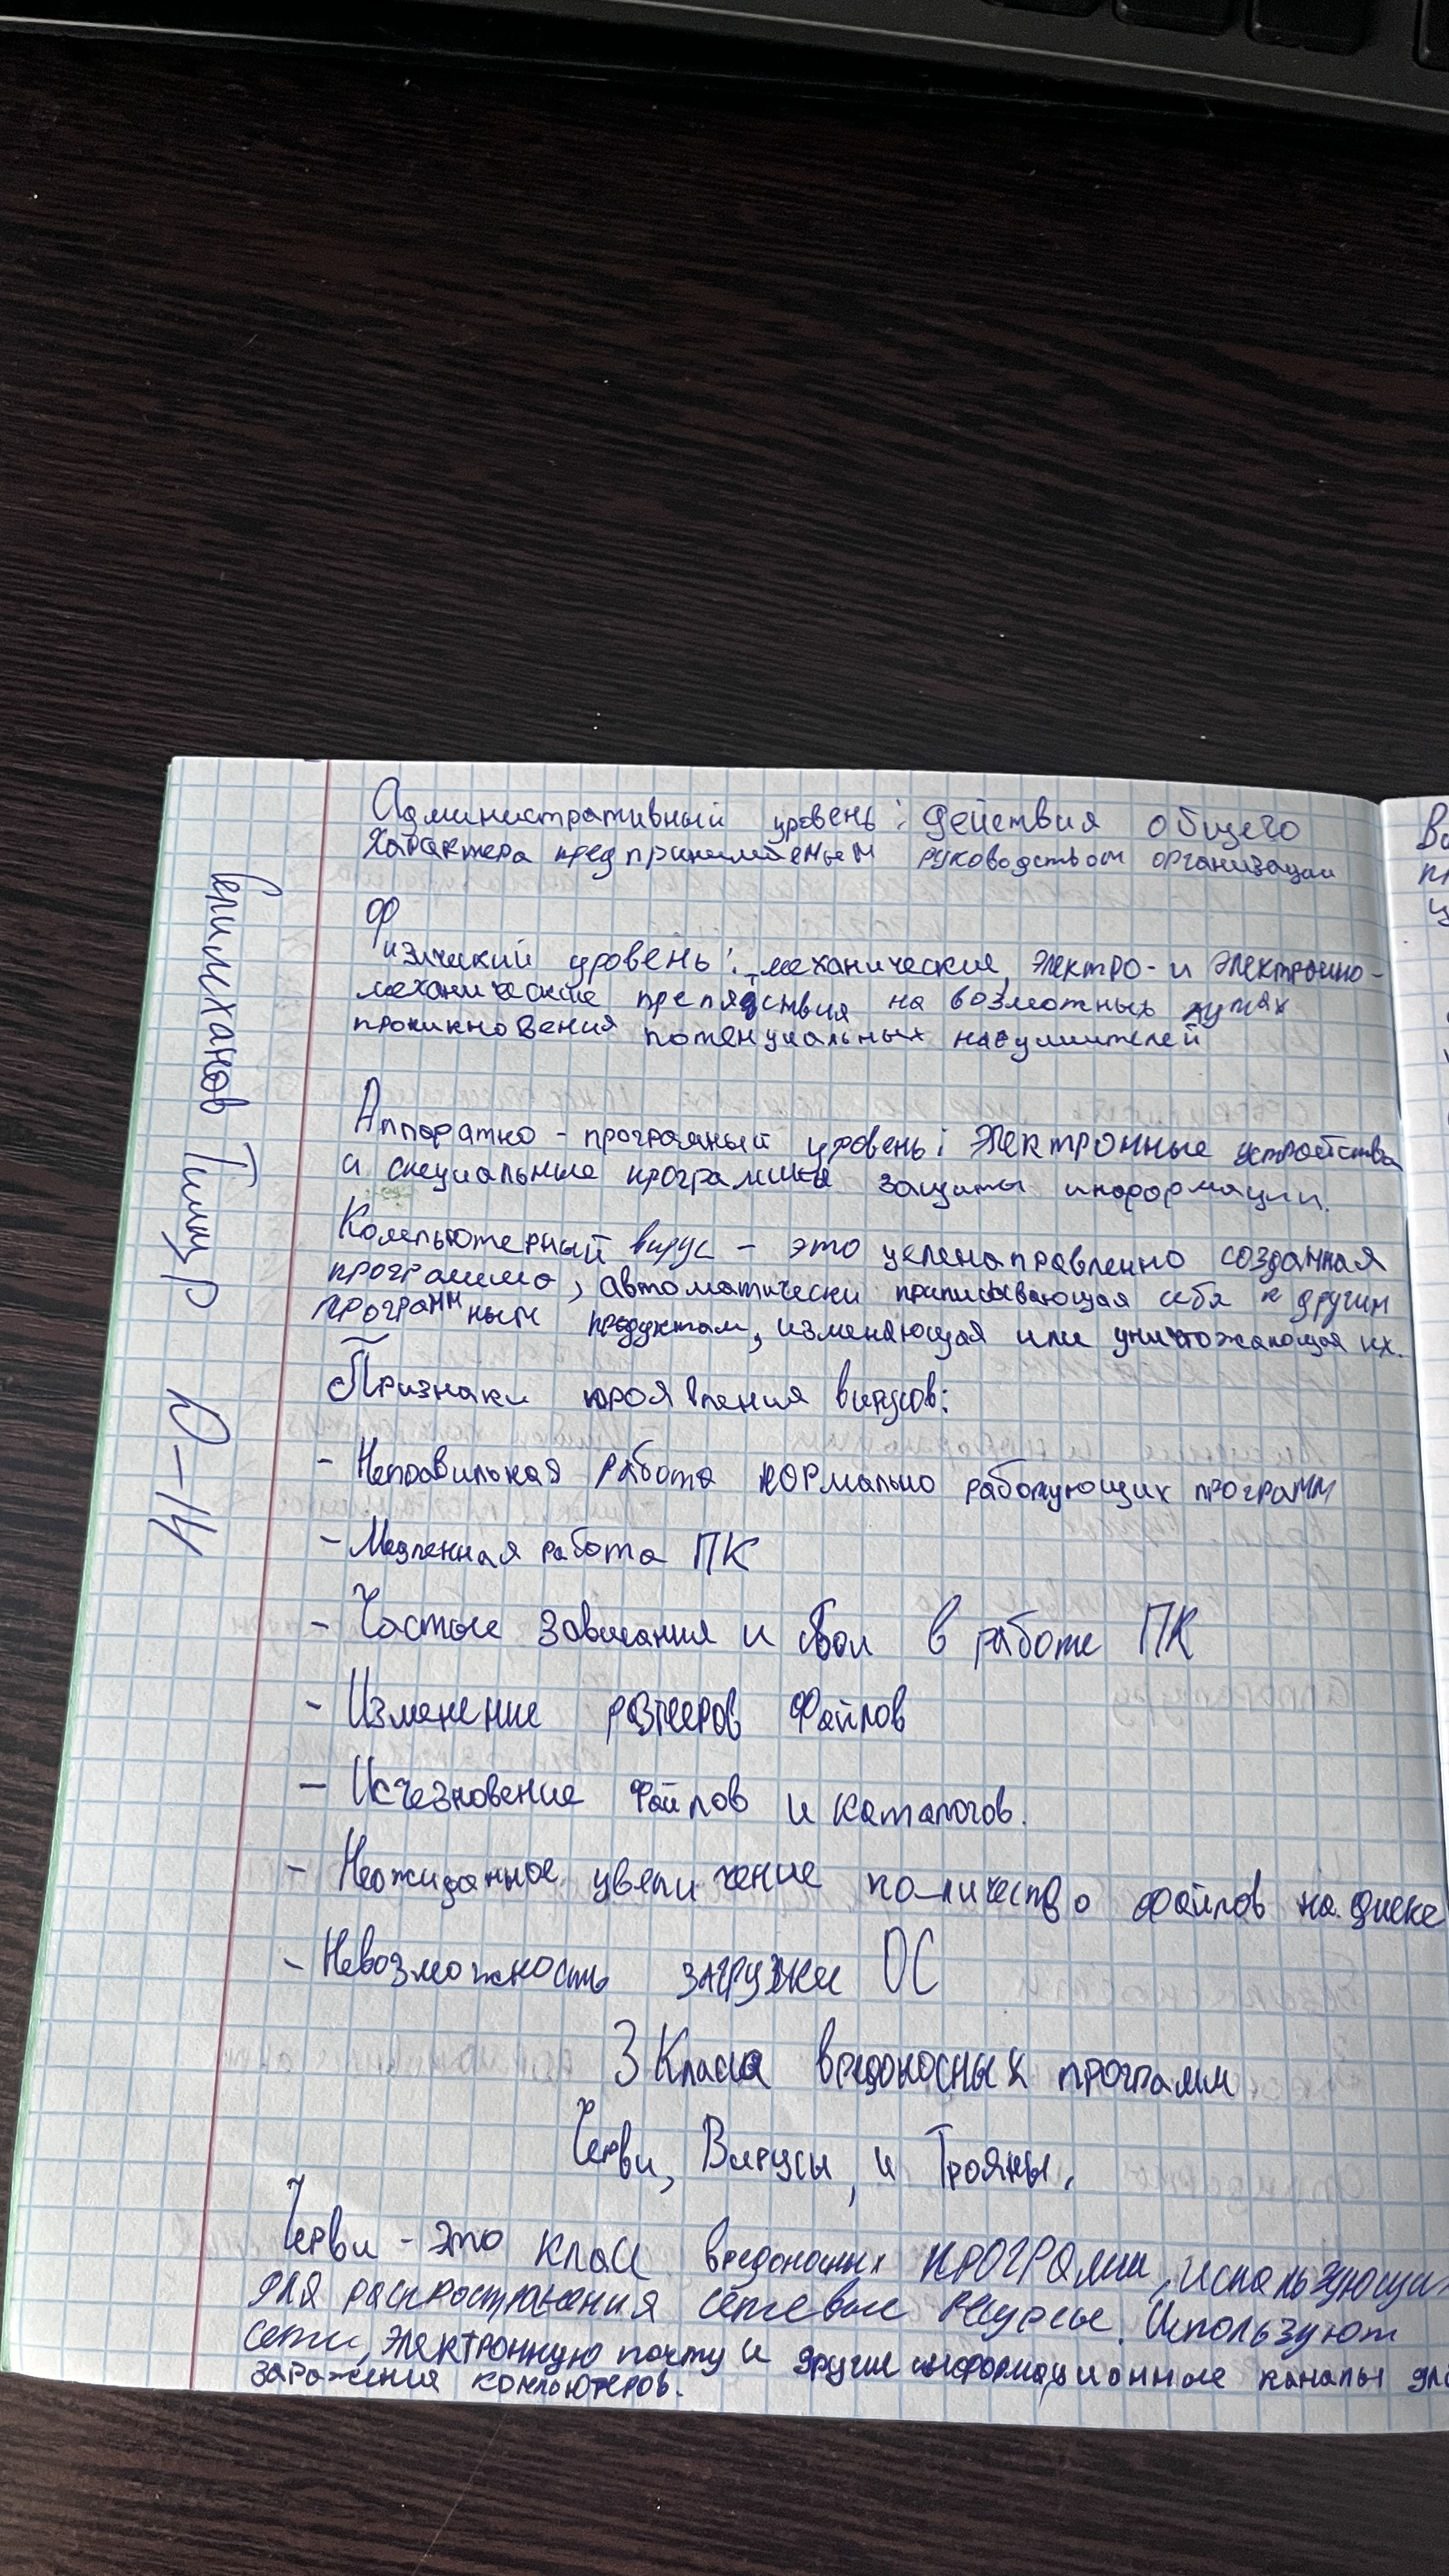 Административный уровень: действия общего
характера предпринимаеныем руководством организации
Физичикий уровень: механические, электро- и электронно-
механические препядствия на возможных путях
проникновения потенциальных нарушителей
Аппаратно - програмный уровень: электронные устройства
и специальные программы защиты информации.
Компьютерный вирус - это целенаправленно созданная
программа, автоматически приписывающая себя к другим
программным продуктам, изменяющая или уничтожающая их.
Признаки проявления вирусов:
- Неправильная работа нормально работующих программ
- Медленная работа ПК
- Частые зависания и сбои в работе ПК
- Изменение размеров файлов
- Исчезновение файлов и каталогов.
- Неожиданное увеличение количество файлов на диске
- Невозможность загрузки ОС
3 Класса вредоносных программ
Черви, Вирусы, и Трояны.
Черви - это класс вредоносных программ, использующих
для распространения сетевые ресурсы. Используют
сети, электронную почту и другие информационные каналы для
заражения компьютеров.
Тимур